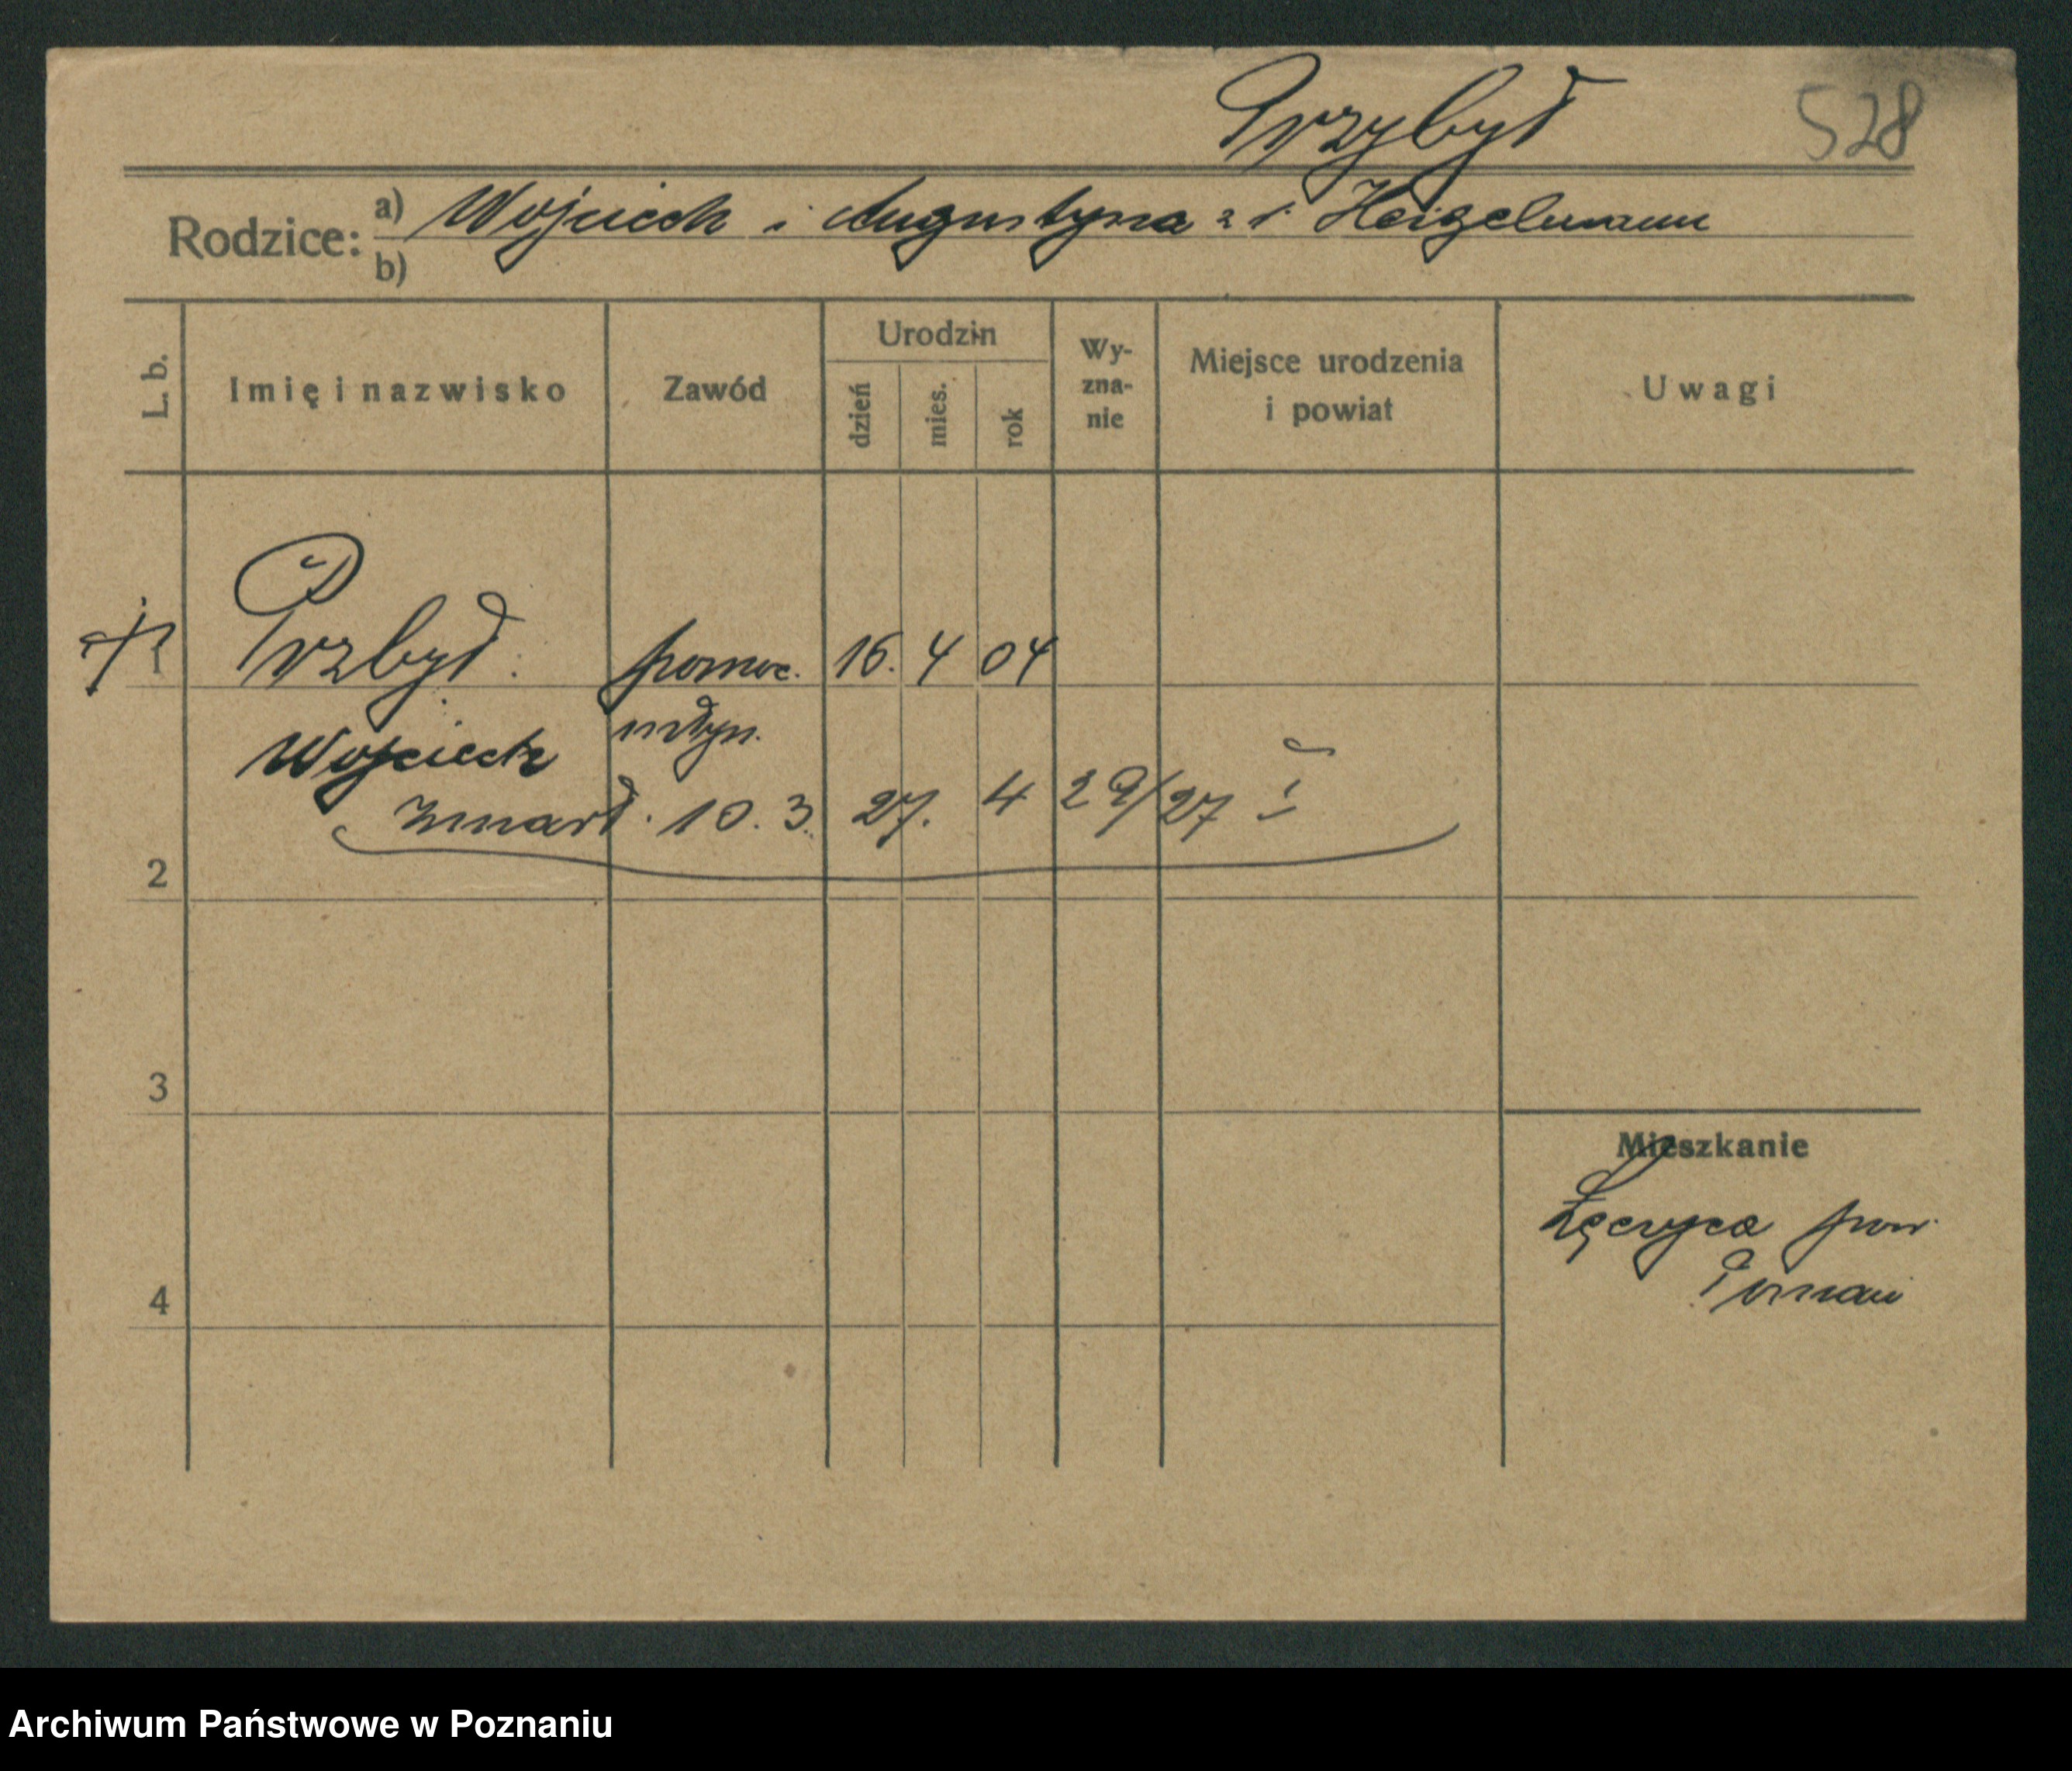 Przybył 528
Rodzice: a) Wojciech i Augustyna z d. Heigelmann
b)
L. b. Imię i nazwisko Zawód Urodzin dzień mies. rok Wy-zna-nie Miejsce urodzenia i powiat Uwagi
1 Przbył pomoc. 16. 4 04
Wojciech młyn.
zmarł. 10. 3. 27. 4 29/27
2
3
Mieszkanie
Łęczyca pow.
Poznań
4
Archiwum Państwowe w Poznaniu